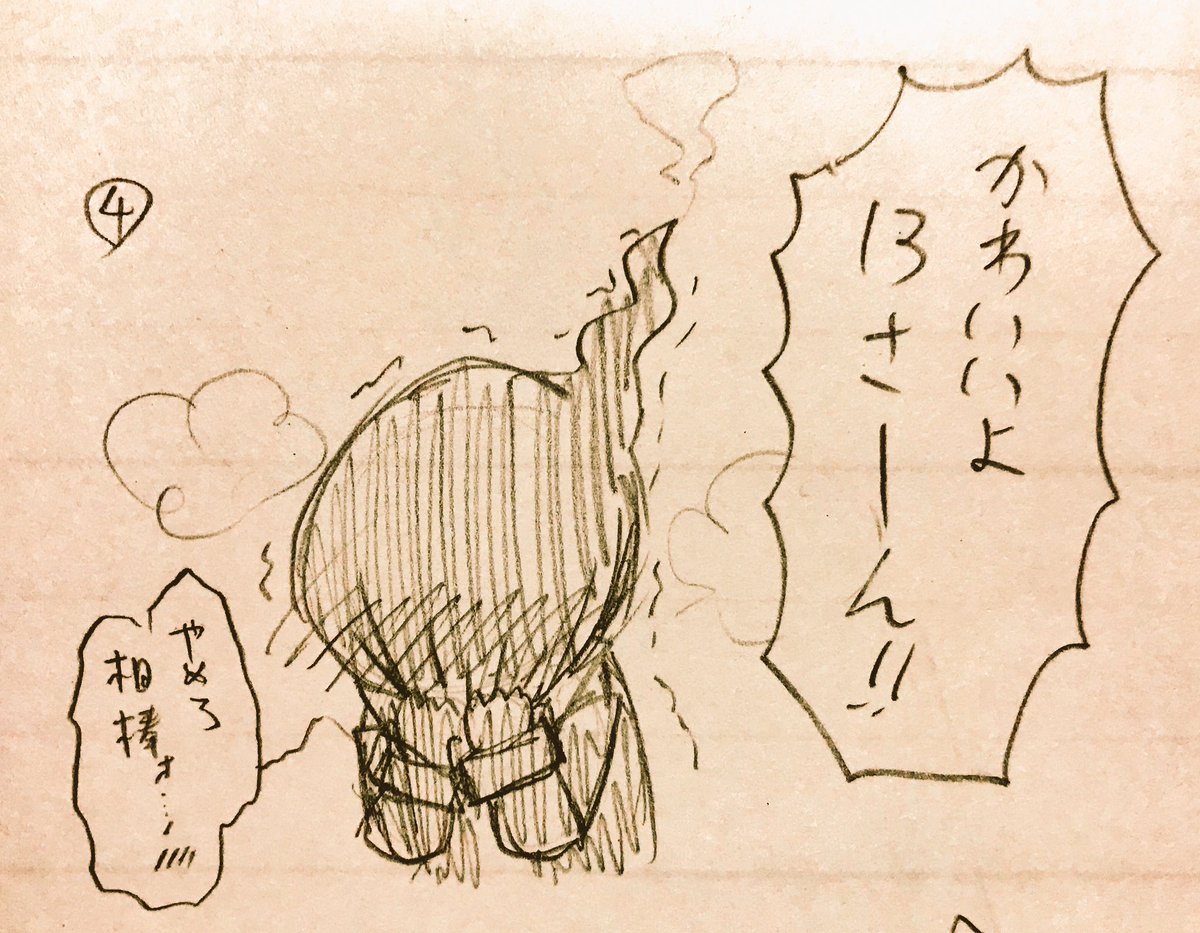 ④
かわいいよ
13さーん!!
やめろ
相棒ォ…!